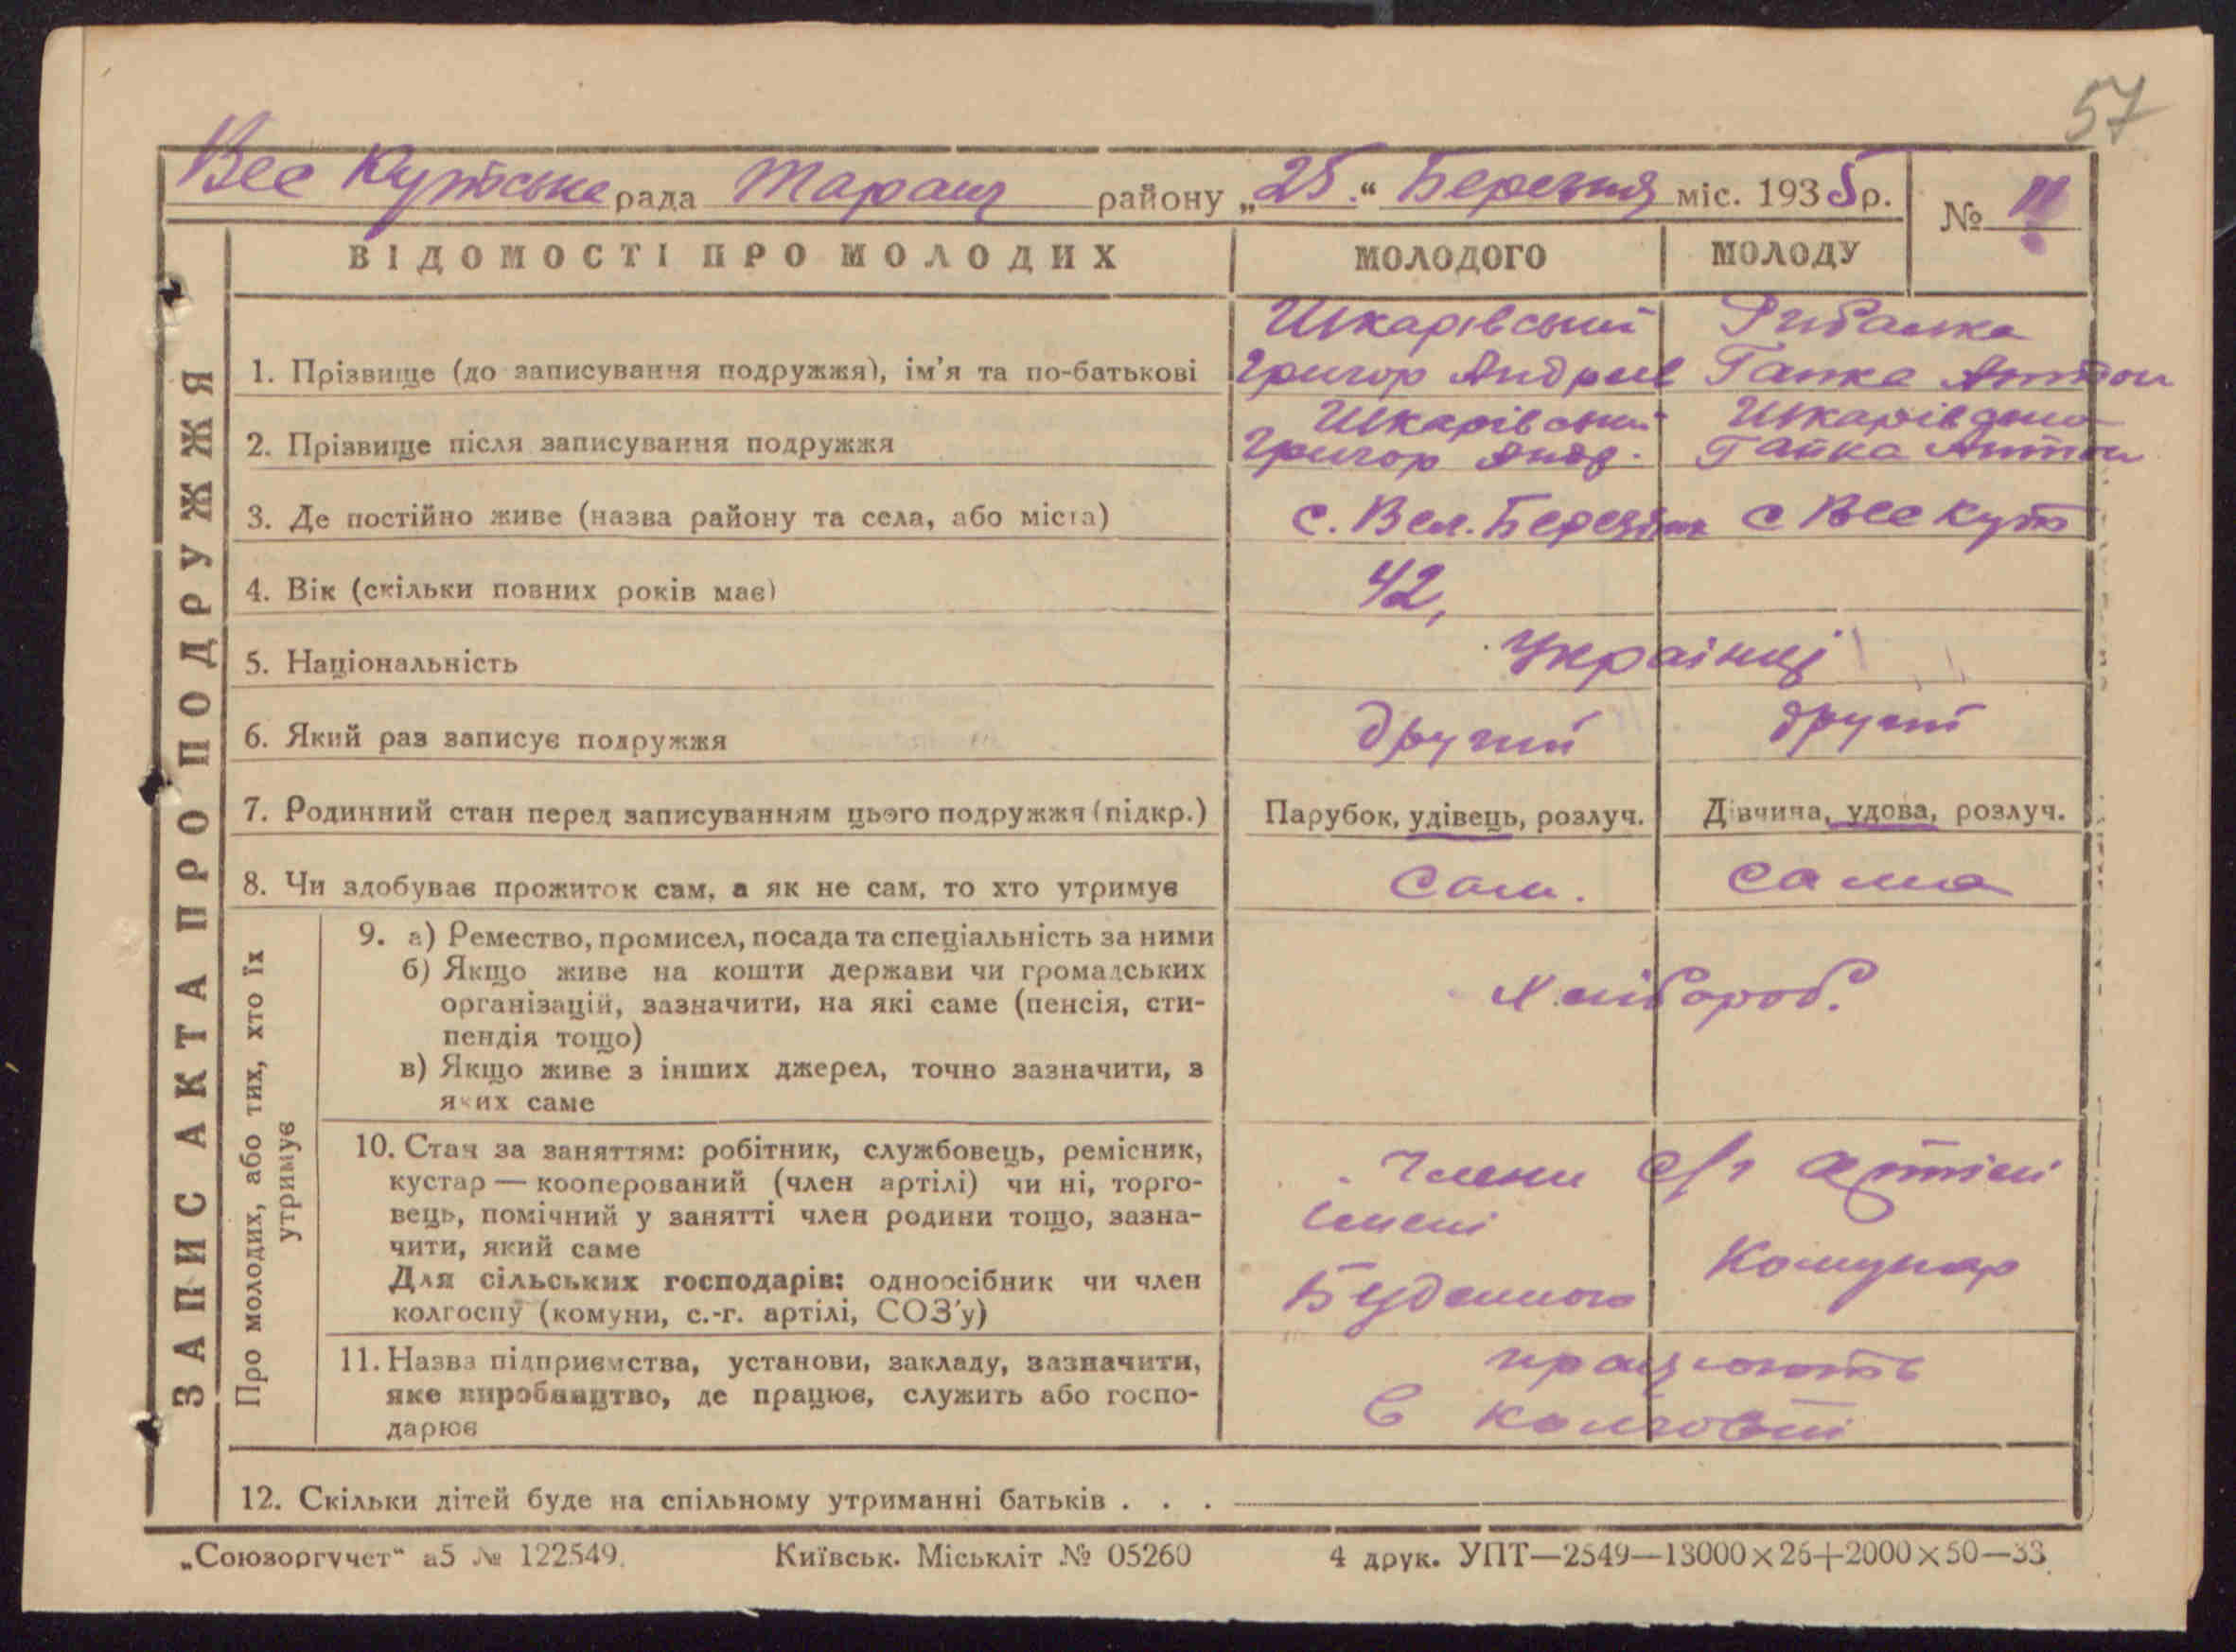 57
Вес Кутська рада Таращ району „25.“ Березня міс. 1935 р. № 11
ВІДОМОСТІ ПРО МОЛОДИХ МОЛОДОГО МОЛОДУ
ЗАПИС АКТА ПРО ПОДРУЖЖЯ
1. Прізвище (до записування подружжя), ім'я та по-батькові Шкарівський Григор Андриев Рибалка Ганка Антон
2. Прізвище після записування подружжя Шкарівський Григор Андр. Шкарівська Ганка Антон
3. Де постійно живе (назва району та села, або міста) с. Вел. Березянк с Вес Кут
4. Вік (скільки повних років має) 42,
5. Національність Українці
6. Який раз записує подружжя другий другий
7. Родинний стан перед записуванням цього подружжя (підкр.) Парубок, удівець, розлуч. Дівчина, удова, розлуч.
8. Чи здобуває прожиток сам, а як не сам, то хто утримує сам. сама
Про молодих, або тих, хто їх утримує
9. а) Ремество, промисел, посада та спеціальність за ними
б) Якщо живе на кошти держави чи громадських
організацій, зазначити, на які саме (пенсія, сти-
пендія тощо)
в) Якщо живе з інших джерел, точно зазначити, з
яких саме
Хлібороб.
10. Стан за заняттям: робітник, службовець, ремісник,
кустар — кооперований (член артілі) чи ні, торго-
вець, помічний у занятті член родини тощо, зазна-
чити, який саме
Для сільських господарів: одноосібник чи член
колгоспу (комуни, с.-г. артілі, СОЗ'у)
Члени с/г артілі
імені
Буденного Комунар
11. Назва підприємства, установи, закладу, зазначити,
яке виробництво, де працює, служить або госпо-
дарює
працюють
в колгоспі
12. Скільки дітей буде на спільному утриманні батьків . . .
„Союзоргучет“ а5 № 122549. Київськ. Міськліт № 05260 4 друк. УПТ—2549—13000×26+2000×50—33.